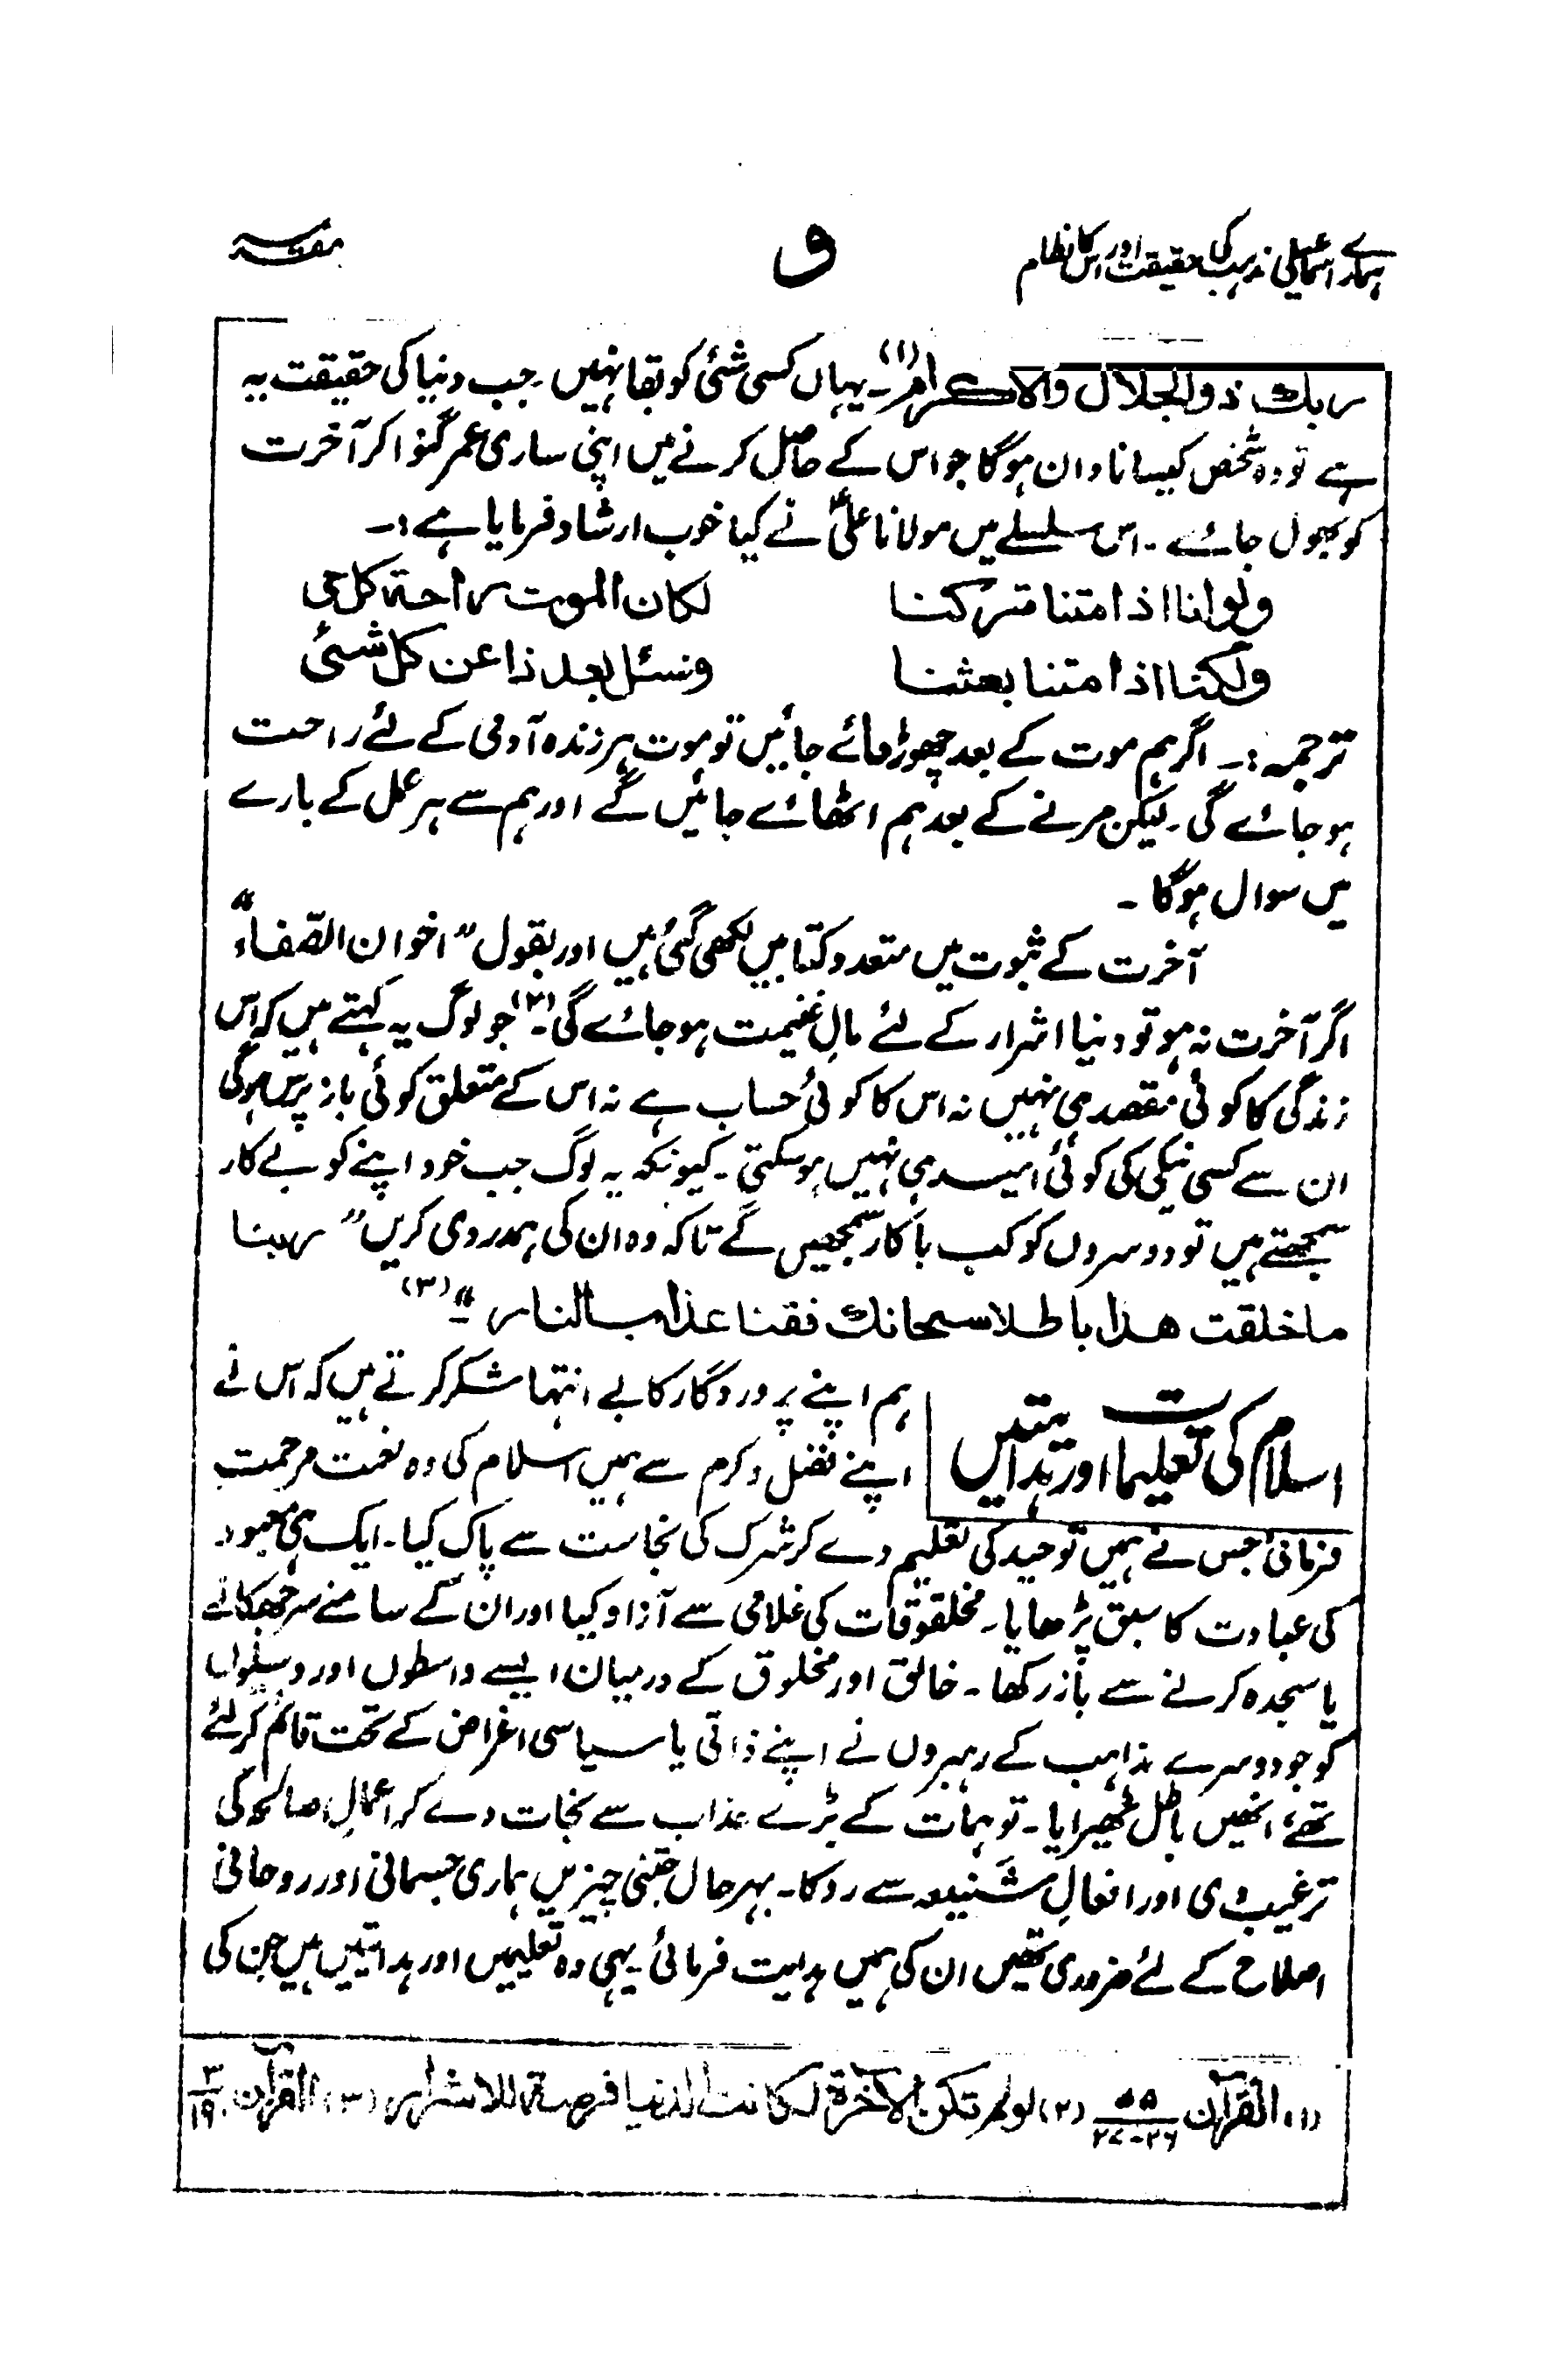 ہمارے اسماعیلی مذہب کی حقیقت اور اس کا نظام
و
مقدمہ
ربك ذو الجلال والاكرام(۱)۔ یہاں کسی شئی کو بقا نہیں۔ جب دنیا کی حقیقت یہ
ہے تو وہ شخص کیسا نادان ہوگا جو اس کے حاصل کرنے میں اپنی ساری عمر گنوا کر آخرت
کو بھول جائے۔ اس سلسلے میں مولانا علیؑ نے کیا خوب ارشاد فرمایا ہے:۔
ولو انا اذا متنا تركنا لكان الموت راحة كل حی
ولكنا اذا متنا بعثنا ونسئل بعد ذا عن كل شئی
ترجمہ:۔ اگر ہم موت کے بعد چھوڑ دئے جائیں تو موت ہر زندہ آدمی کے لئے راحت
ہو جائے گی۔ لیکن مرنے کے بعد ہم اٹھائے جائیں گے اور ہم سے ہر عمل کے بارے
میں سوال ہوگا۔
آخرت کے ثبوت میں متعدد کتابیں لکھی گئی ہیں اور بقول ”اخوان الصّفاء“
اگر آخرت نہ ہو تو دنیا اشرار کے لئے مالِ غنیمت ہو جائے گی۔(۲) جو لوگ یہ کہتے ہیں کہ اس
زندگی کا کوئی مقصد ہی نہیں نہ اس کا کوئی حساب ہے نہ اس کے متعلق کوئی باز پرس ہوگی
ان سے کسی نیکی کی کوئی امید ہی نہیں ہو سکتی۔ کیونکہ یہ لوگ جب خود اپنے کو بے کار
سمجھتے ہیں تو دوسروں کو کب باکار سمجھیں گے تاکہ وہ ان کی ہمدردی کریں ”ربنا
ما خلقت هذا باطلا سبحانك فقنا عذاب النار“۔(۳)
اسلام کی تعلیمات اور ہدایتیں
ہم اپنے پروردگار کا بے انتہا شکر کرتے ہیں کہ اس نے
اپنے فضل و کرم سے ہمیں اسلام کی وہ نعمت مرحمت
فرمائی جس نے ہمیں توحید کی تعلیم دے کر شرک کی نجاست سے پاک کیا۔ ایک ہی معبود
کی عبادت کا سبق پڑھایا۔ مخلقوقات کی غلامی سے آزاد کیا اور ان کے سامنے سر جھکانے
یا سجدہ کرنے سے باز رکھا۔ خالق اور مخلوق کے درمیان ایسے واسطوں اور وسیلوں
کو جو دوسرے مذاہب کے رہبروں نے اپنے ذاتی یا سیاسی اغراض کے تحت قائم کر لئے
تھے، انھیں باطل ٹھیرایا۔ توہمات کے بڑے عذاب سے نجات دے کر اعمالِ صالحہ کی
ترغیب دی اور افعالِ شنیعہ سے روکا۔ بہر حال جتنی چیزیں ہماری جسمانی اور روحانی
اصلاح کے لئے ضروری تھیں ان کی ہمیں ہدایت فرمائی۔ یہی وہ تعلیمیں اور ہدایتیں ہیں جن کی
(۱) القرآن ۵۵/۲۶-۲۷ (۲) لولم تكن الآخرة لكانت الدنيا فرصة للاشرار (۳) القرآن ۳/۱۹۰